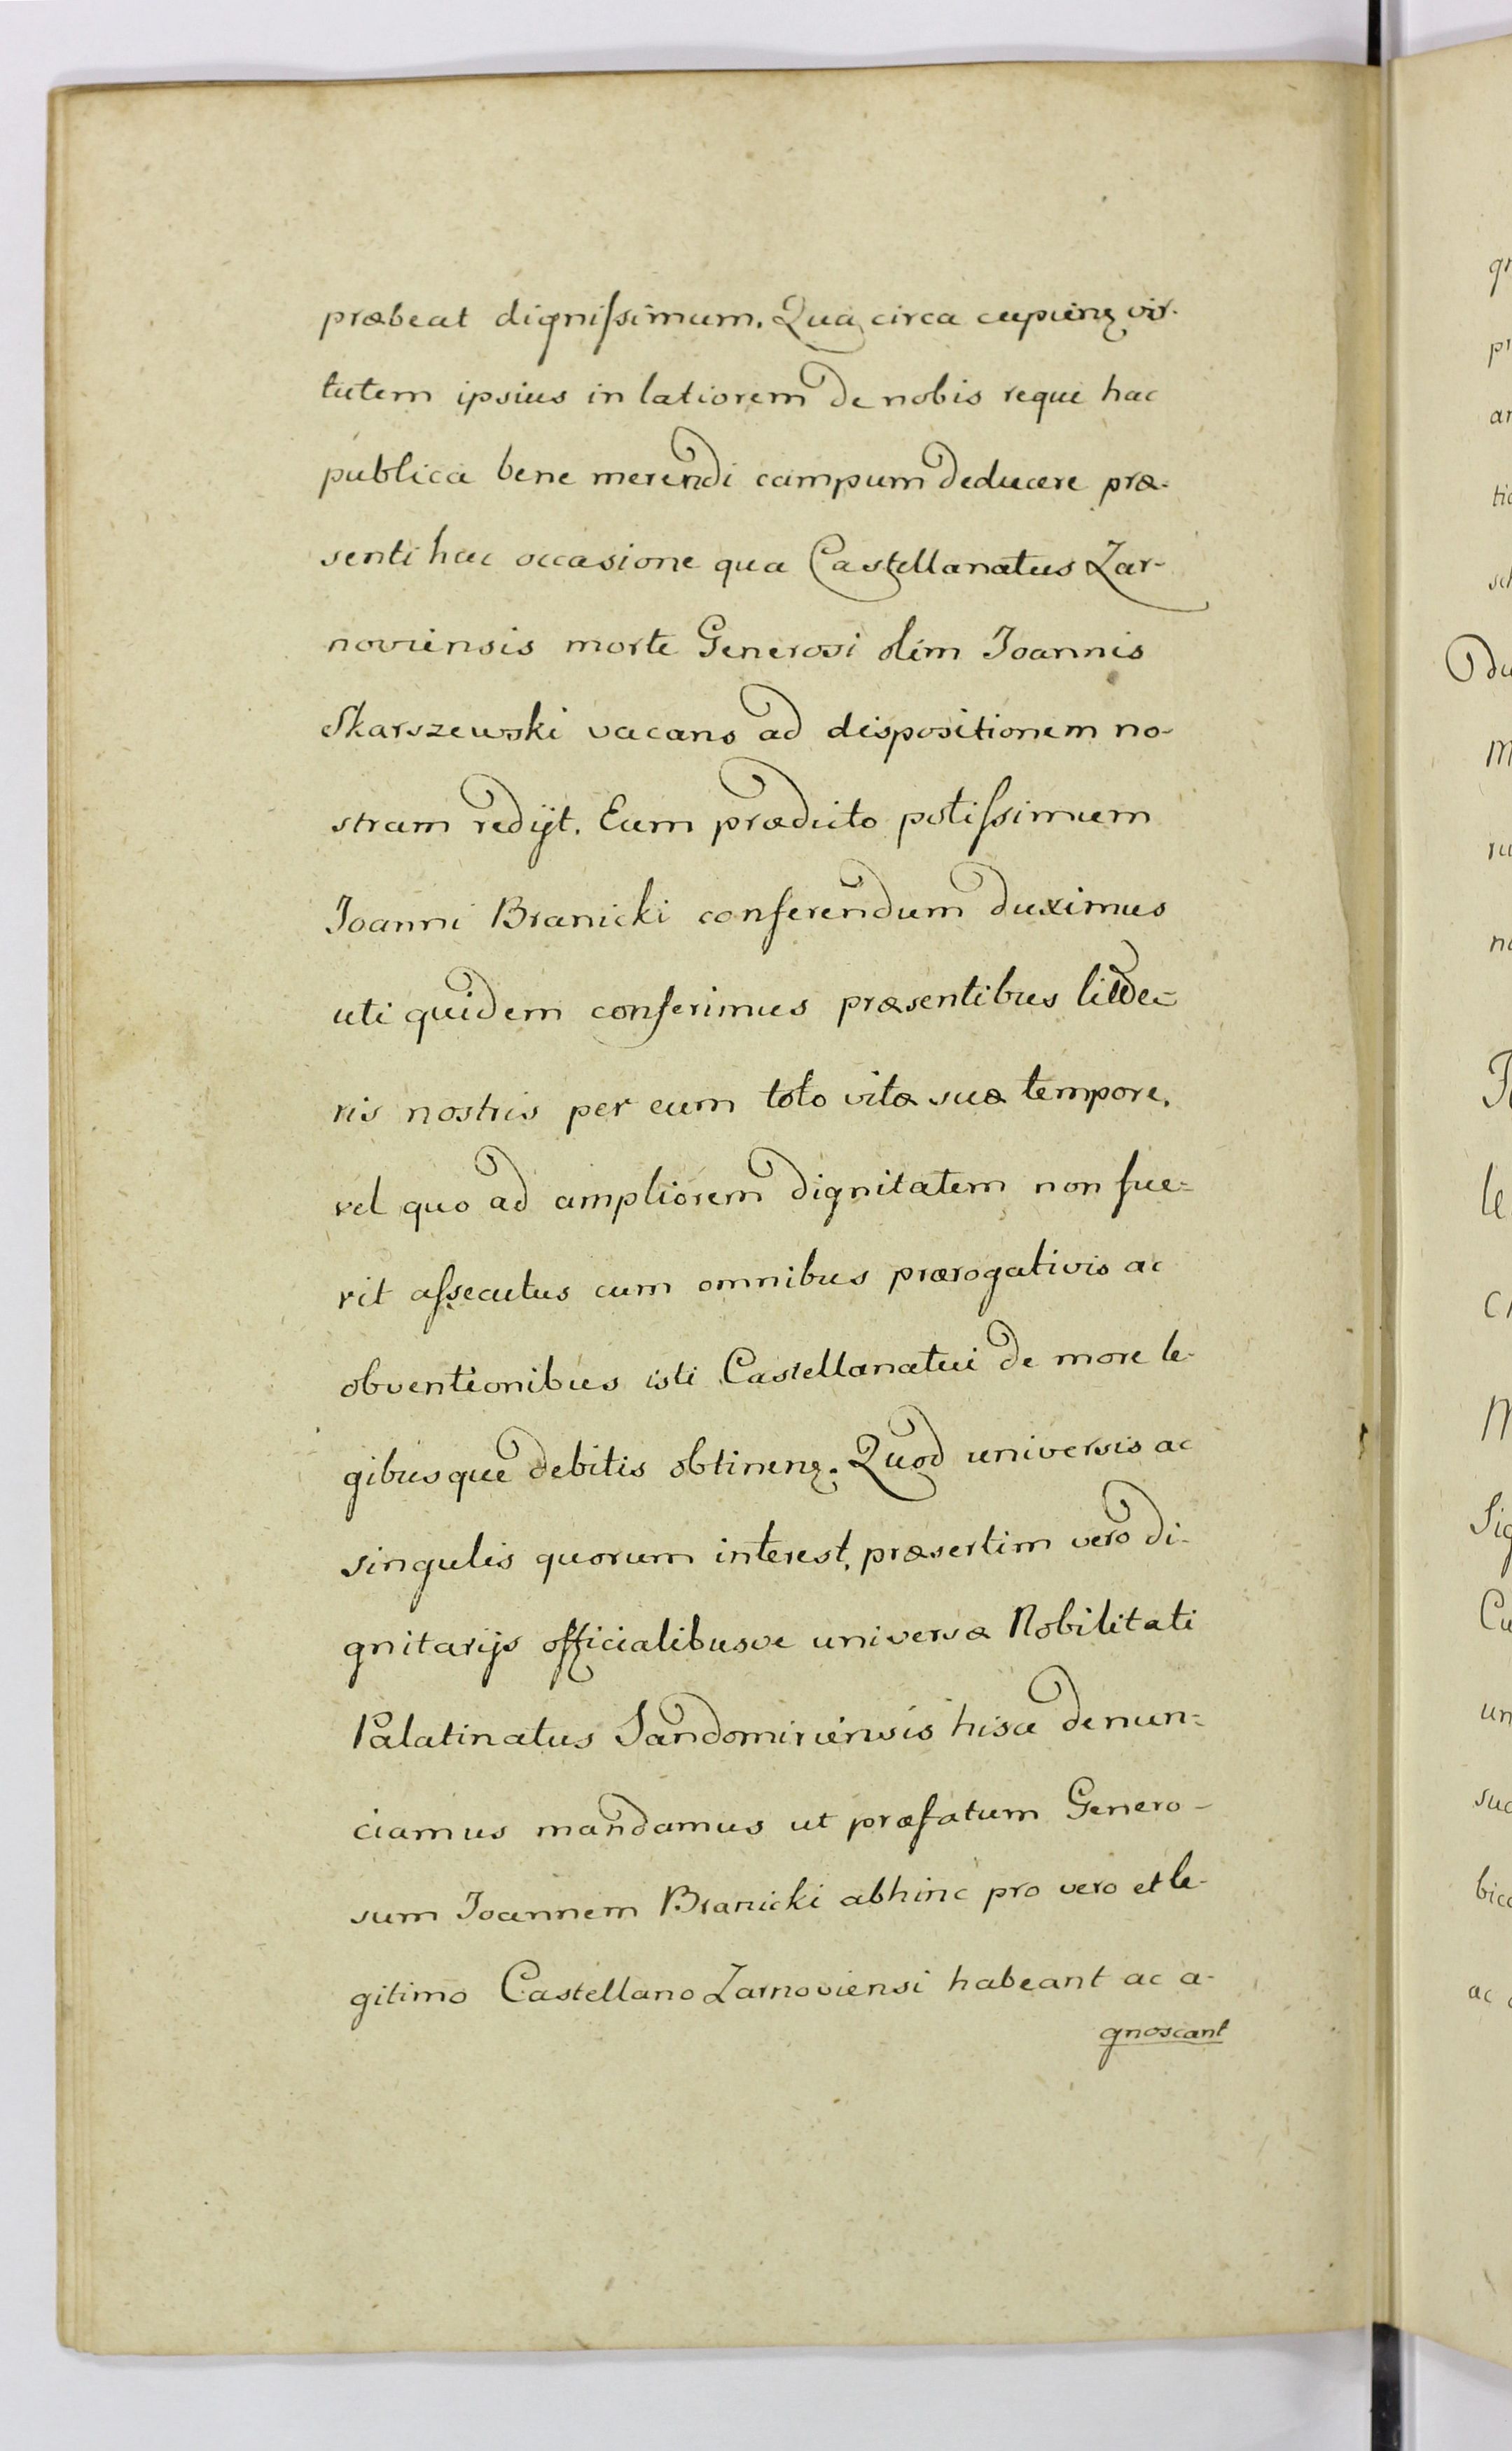 præbeat digniſsimum. Qua circa cupieng vir-
tutem ipsius in latiorem de nobis reque hac
publica bene merendi campum deducere præ-
senti hac occasione qua Castellanatus Zar-
noviensis morte Generosi olim Joannis
Skarszewski vacans ad dispositionem no-
stram redijt. Eum prædicto potiſsimum
Joanni Branicki conferendum duximus
uti quidem conferimus præsentibus litte-
ris nostris per eum toto vitæ suæ tempore.
vel quo ad ampliorem dignitatem non fue-
rit aſsecutus cum omnibus prærogativis ac
obventionibus isti Castellanatui de more le-
gibusque debitis obtineng. Quod universis ac
singulis quorum interest, præsertim vero di-
gnitarijs officialibusve universæ Nobilitati
Palatinatus Sandomiriensis hisce denun-
ciamus mandamus ut præfatum Genero-
sum Joannem Branicki abhinc pro vero et le-
gitimo Castellano Zarnoviensi habeant ac a-
gnoscant